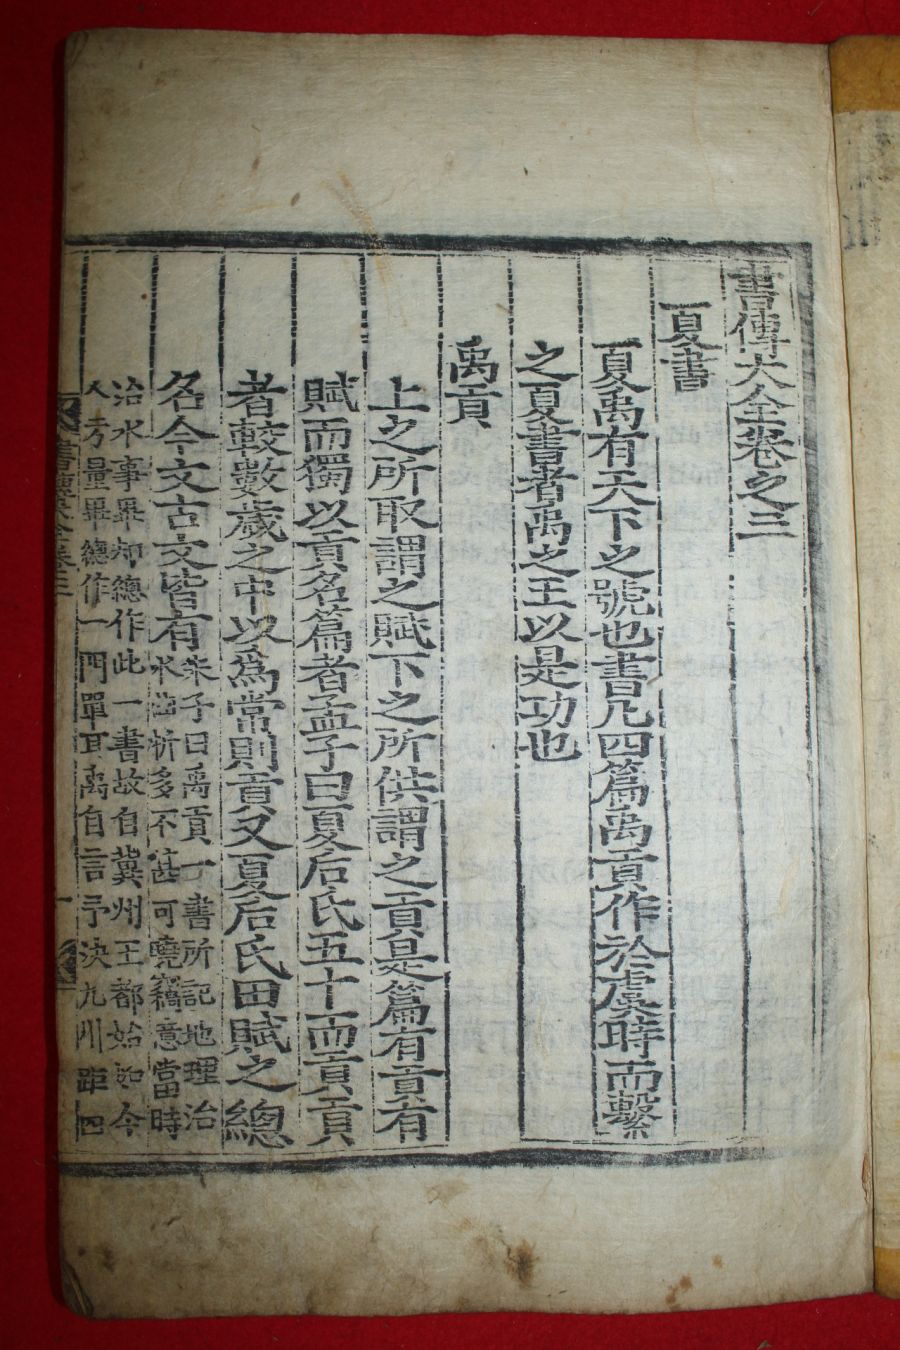 書傳大全卷之三
夏書
夏禹有天下之號也書凡四篇禹貢作於虞時而繫
之夏書者禹之王以是功也
禹貢
上之所取謂之賦下之所供謂之貢是篇有貢有
賦而獨以貢名篇者孟子曰夏后氏五十而貢貢
者較數歲之中以爲常則貢又夏后氏田賦之總
名今文古文皆有
朱子曰禹貢一書所記地理治
水曲折多不甚可曉竊意當時
治水事畢却總作此一書故自冀州王都始如今
人方量畢總作一門單耳禹自言予決九川距四
書傳大全卷三
一